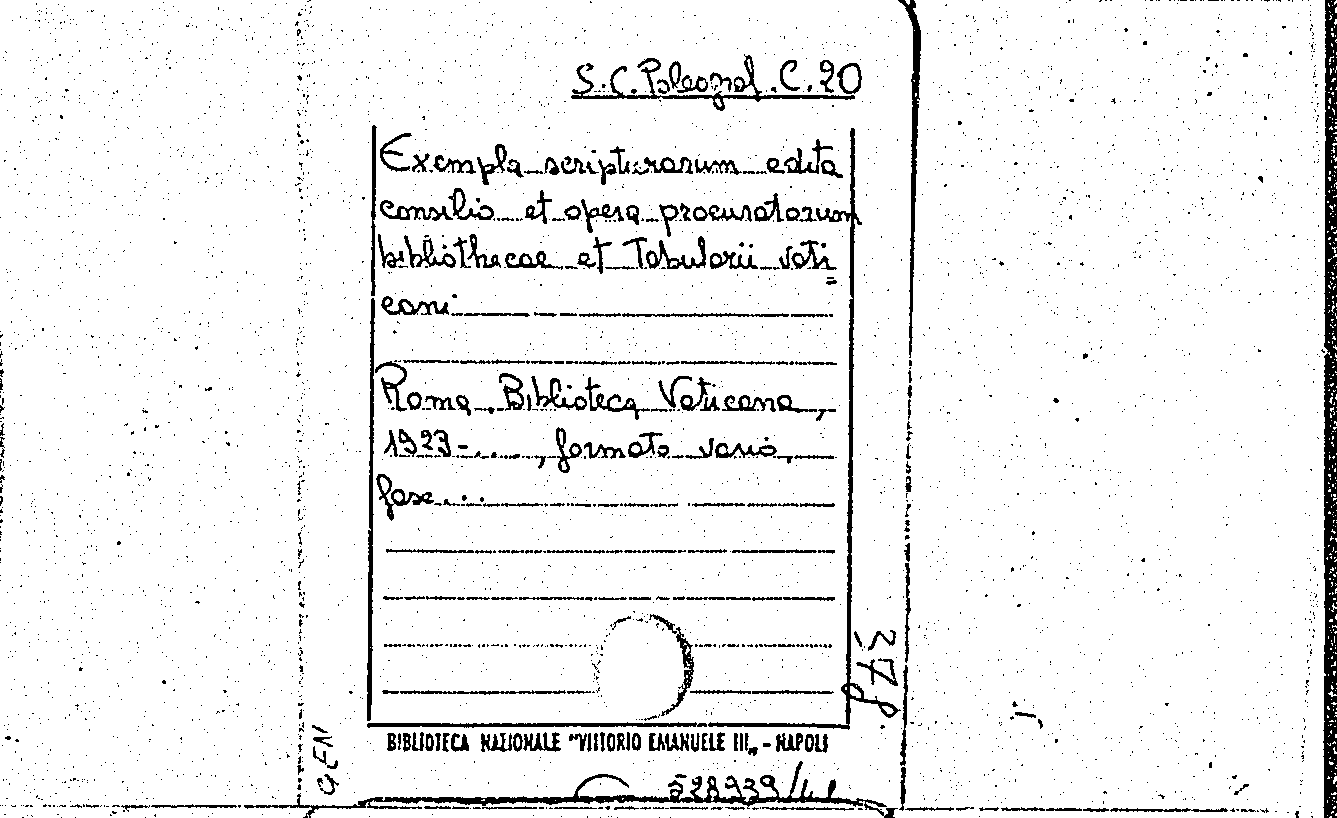 S.C. Paleograf. C. 20
Exempla scripturarum edita
consilio et opera procuratorum
bibliothecae et Tabularii vati=
cani
Roma. Biblioteca Vaticana,
1923-...., formato vario,
fasc...
BIBLIOTECA NAZIONALE "VITTORIO EMANUELE III„ - NAPOLI
GEN